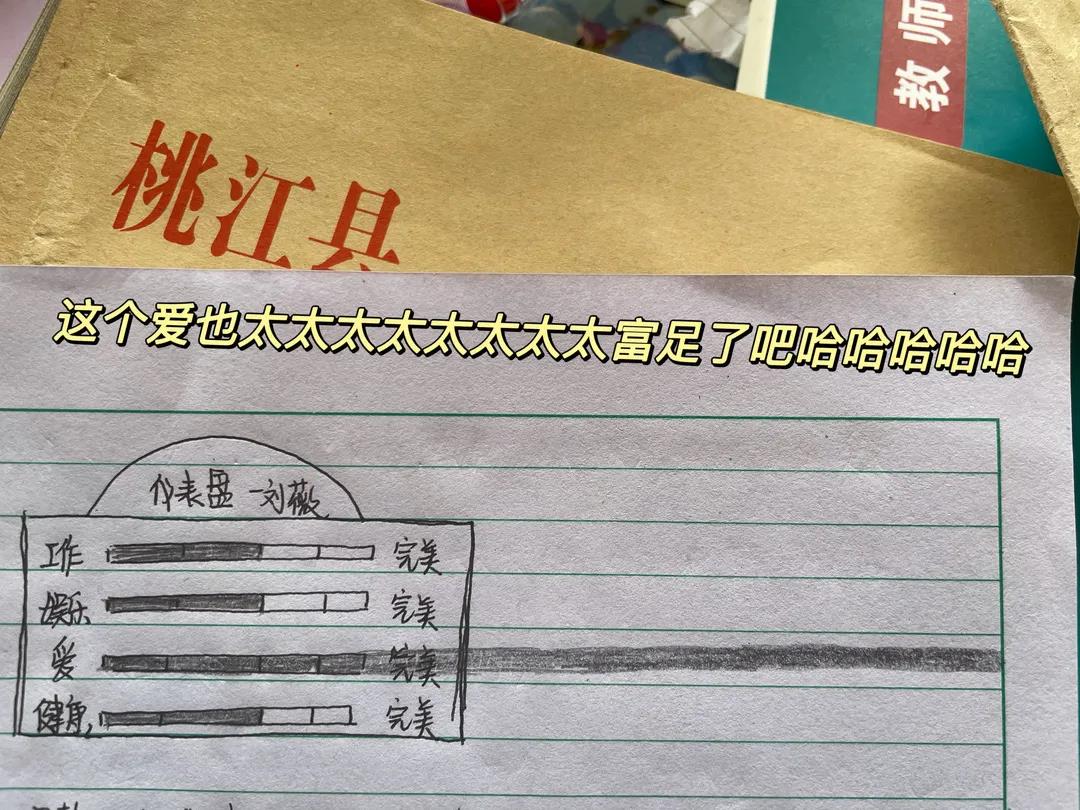 教师
桃江县
这个爱也太太太太太太太太富足了吧哈哈哈哈哈
仪表盘-刘薇
工作 完美
娱乐 完美
爱 完美
健康 完美